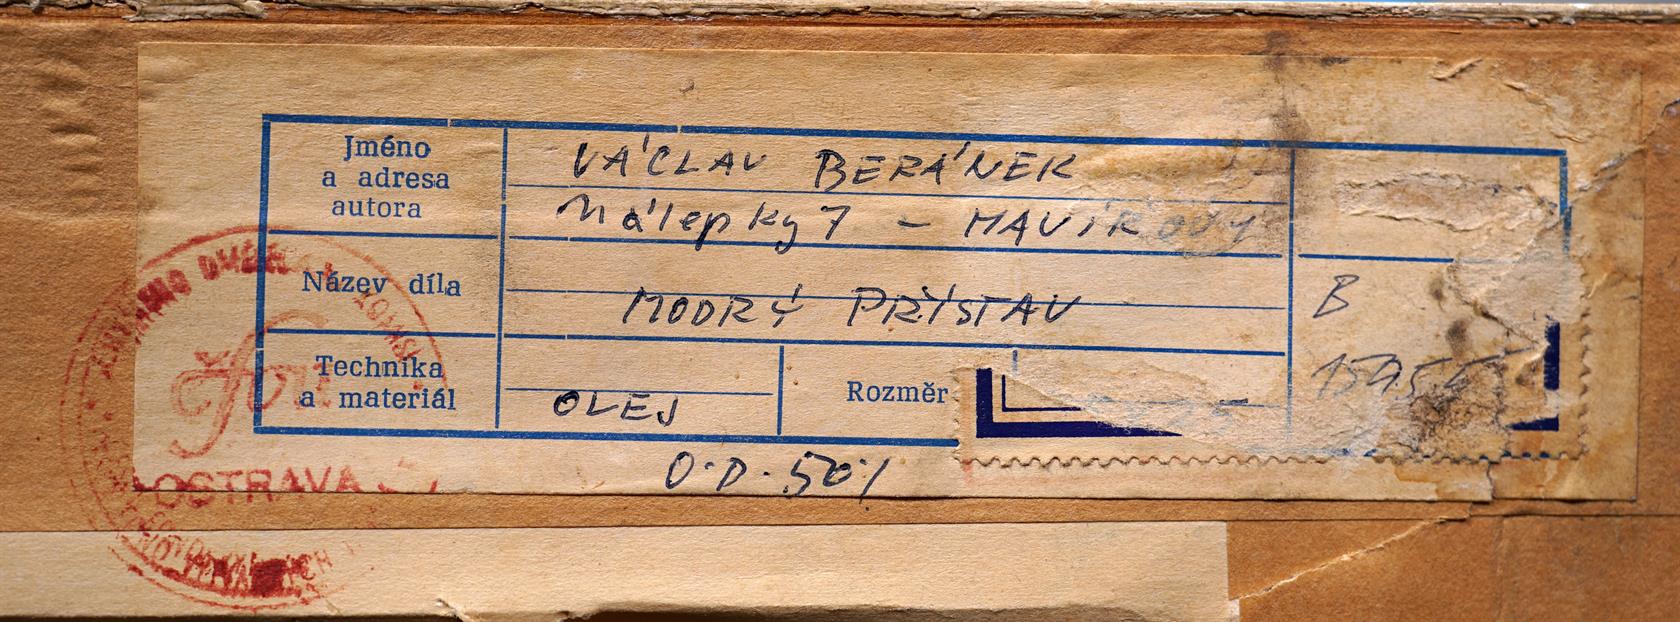 Jméno
a adresa
autora
VÁCLAV BERÁNEK
Nálepky 7 - HAVÍŘOV
Název díla
MODRÝ PŘÍSTAV
B
Technika
a materiál
OLEJ
Rozměr
O.D. 501
OSTRAVA